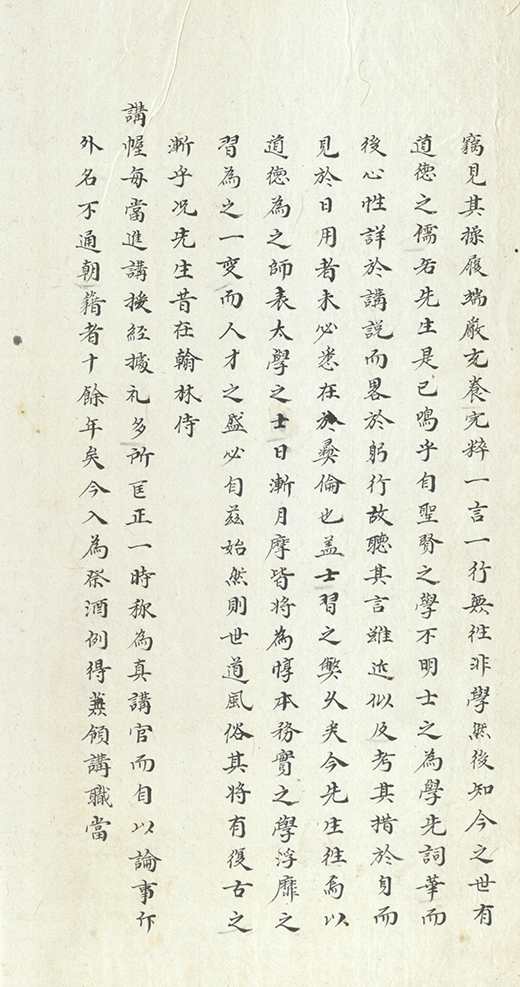 竊見其操履端嚴充養完粹一言一行無往非學然後知今之世有
道德之儒若先生是已嗚乎自聖賢之學不明士之為學先詞華而
後心性詳於講說而畧於躬行故聽其言雖近似及考其措於身而
見於日用者未必悉在於彛倫也盖士習之獘久矣今先生往焉以
道德為之師表太學之士日漸月摩皆將為惇本務實之學浮靡之
習為之一變而人才之盛必自茲始然則世道風俗其將有復古之
漸乎况先生昔在翰林侍
講幄每當進講援經據礼多所匡正一時称為真講官而自以論事仵
外名不通朝籍者十餘年矣今入為祭酒例得兼領講職當